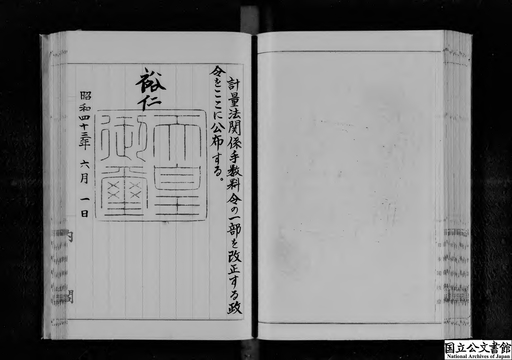 計量法関係手数料令の一部を改正する政
令をここに公布する。
裕仁
天皇
御璽
昭和四十三年 六月 一日
内
閣
国立公文書館
National Archives of Japan